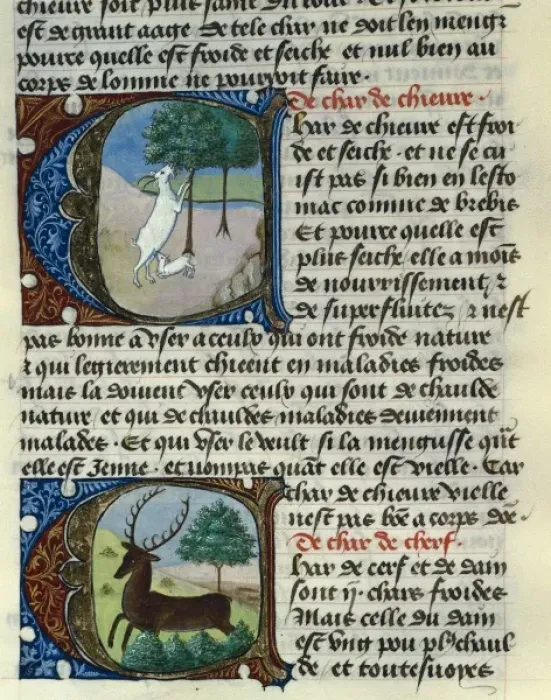 chieure soit plus saine du tout
est de grant aage. De tele char ne doit len mengr
pource quelle est froide et seiche et nul bien au
corps de lomme ne pourroit faire.
De char de chieure.
har de chieure est froi
de et seiche. et ne se cu
ist pas si bien en lesto
mac comme de brebis
Et pource quelle est
plus seiche elle a mois
de nourrissement ⁊
de superfluitez ⁊ nest
pas bonne a vser a ceulx qui ont froide nature
⁊ qui legierement chieent en maladies froides
mais la doiuent vser ceulx qui sont de chaulde
nature et qui de chauldes maladies deuiennent
malades. Et qui vser le veult si la mengusse qñt
elle est Jenne. et nompas quãt elle est vielle. Car
char de chieure vielle
nest pas bõe a corps dõe.
De char de cherf.
har de cerf et de dain
sont ij. chars froides
Mais celle du dain
est vng pou pl9 chaul
de et toutesuoyes